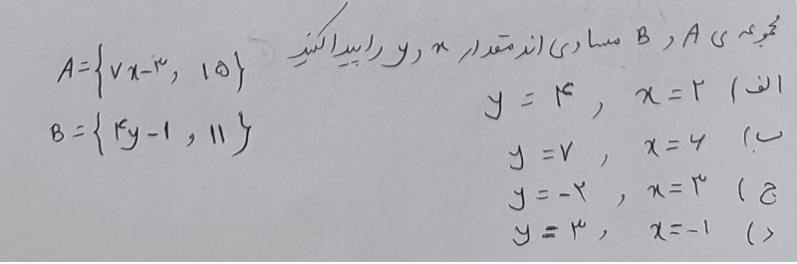 مجموعه ی A و B مساوی اند مقدار x و y را پیدا کنید
A={۷x-۳, ۱۵}
B={۴y-۱, ۱۱}
الف) x=۲ , y=۴
ب) x=۶ , y=۷
ج) x=۳ , y=-۲
د) x=-۱ , y=۳